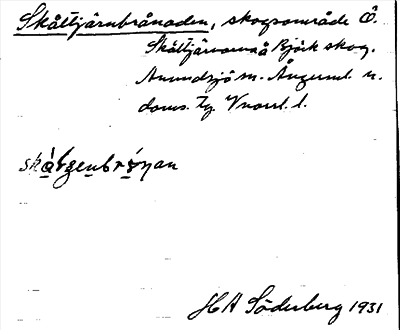 Skåltjärnbrånaden, skogsområde Ö.
Skåltjärnarna å Björk skog.
Anundsjö sn. Ångerml. n.
doms. Tg. Vnorrl. l.
skåltjenbrónan
H A Söderberg 1931